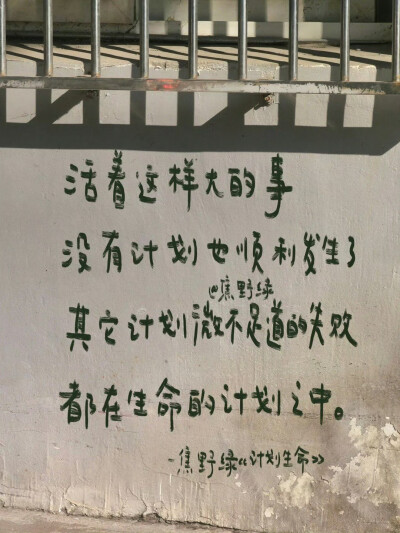 活着这样大的事
没有计划也顺利发生了
@焦野绿
其它计划微不足道的失败
都在生命的计划之中。
-焦野绿《计划生命》